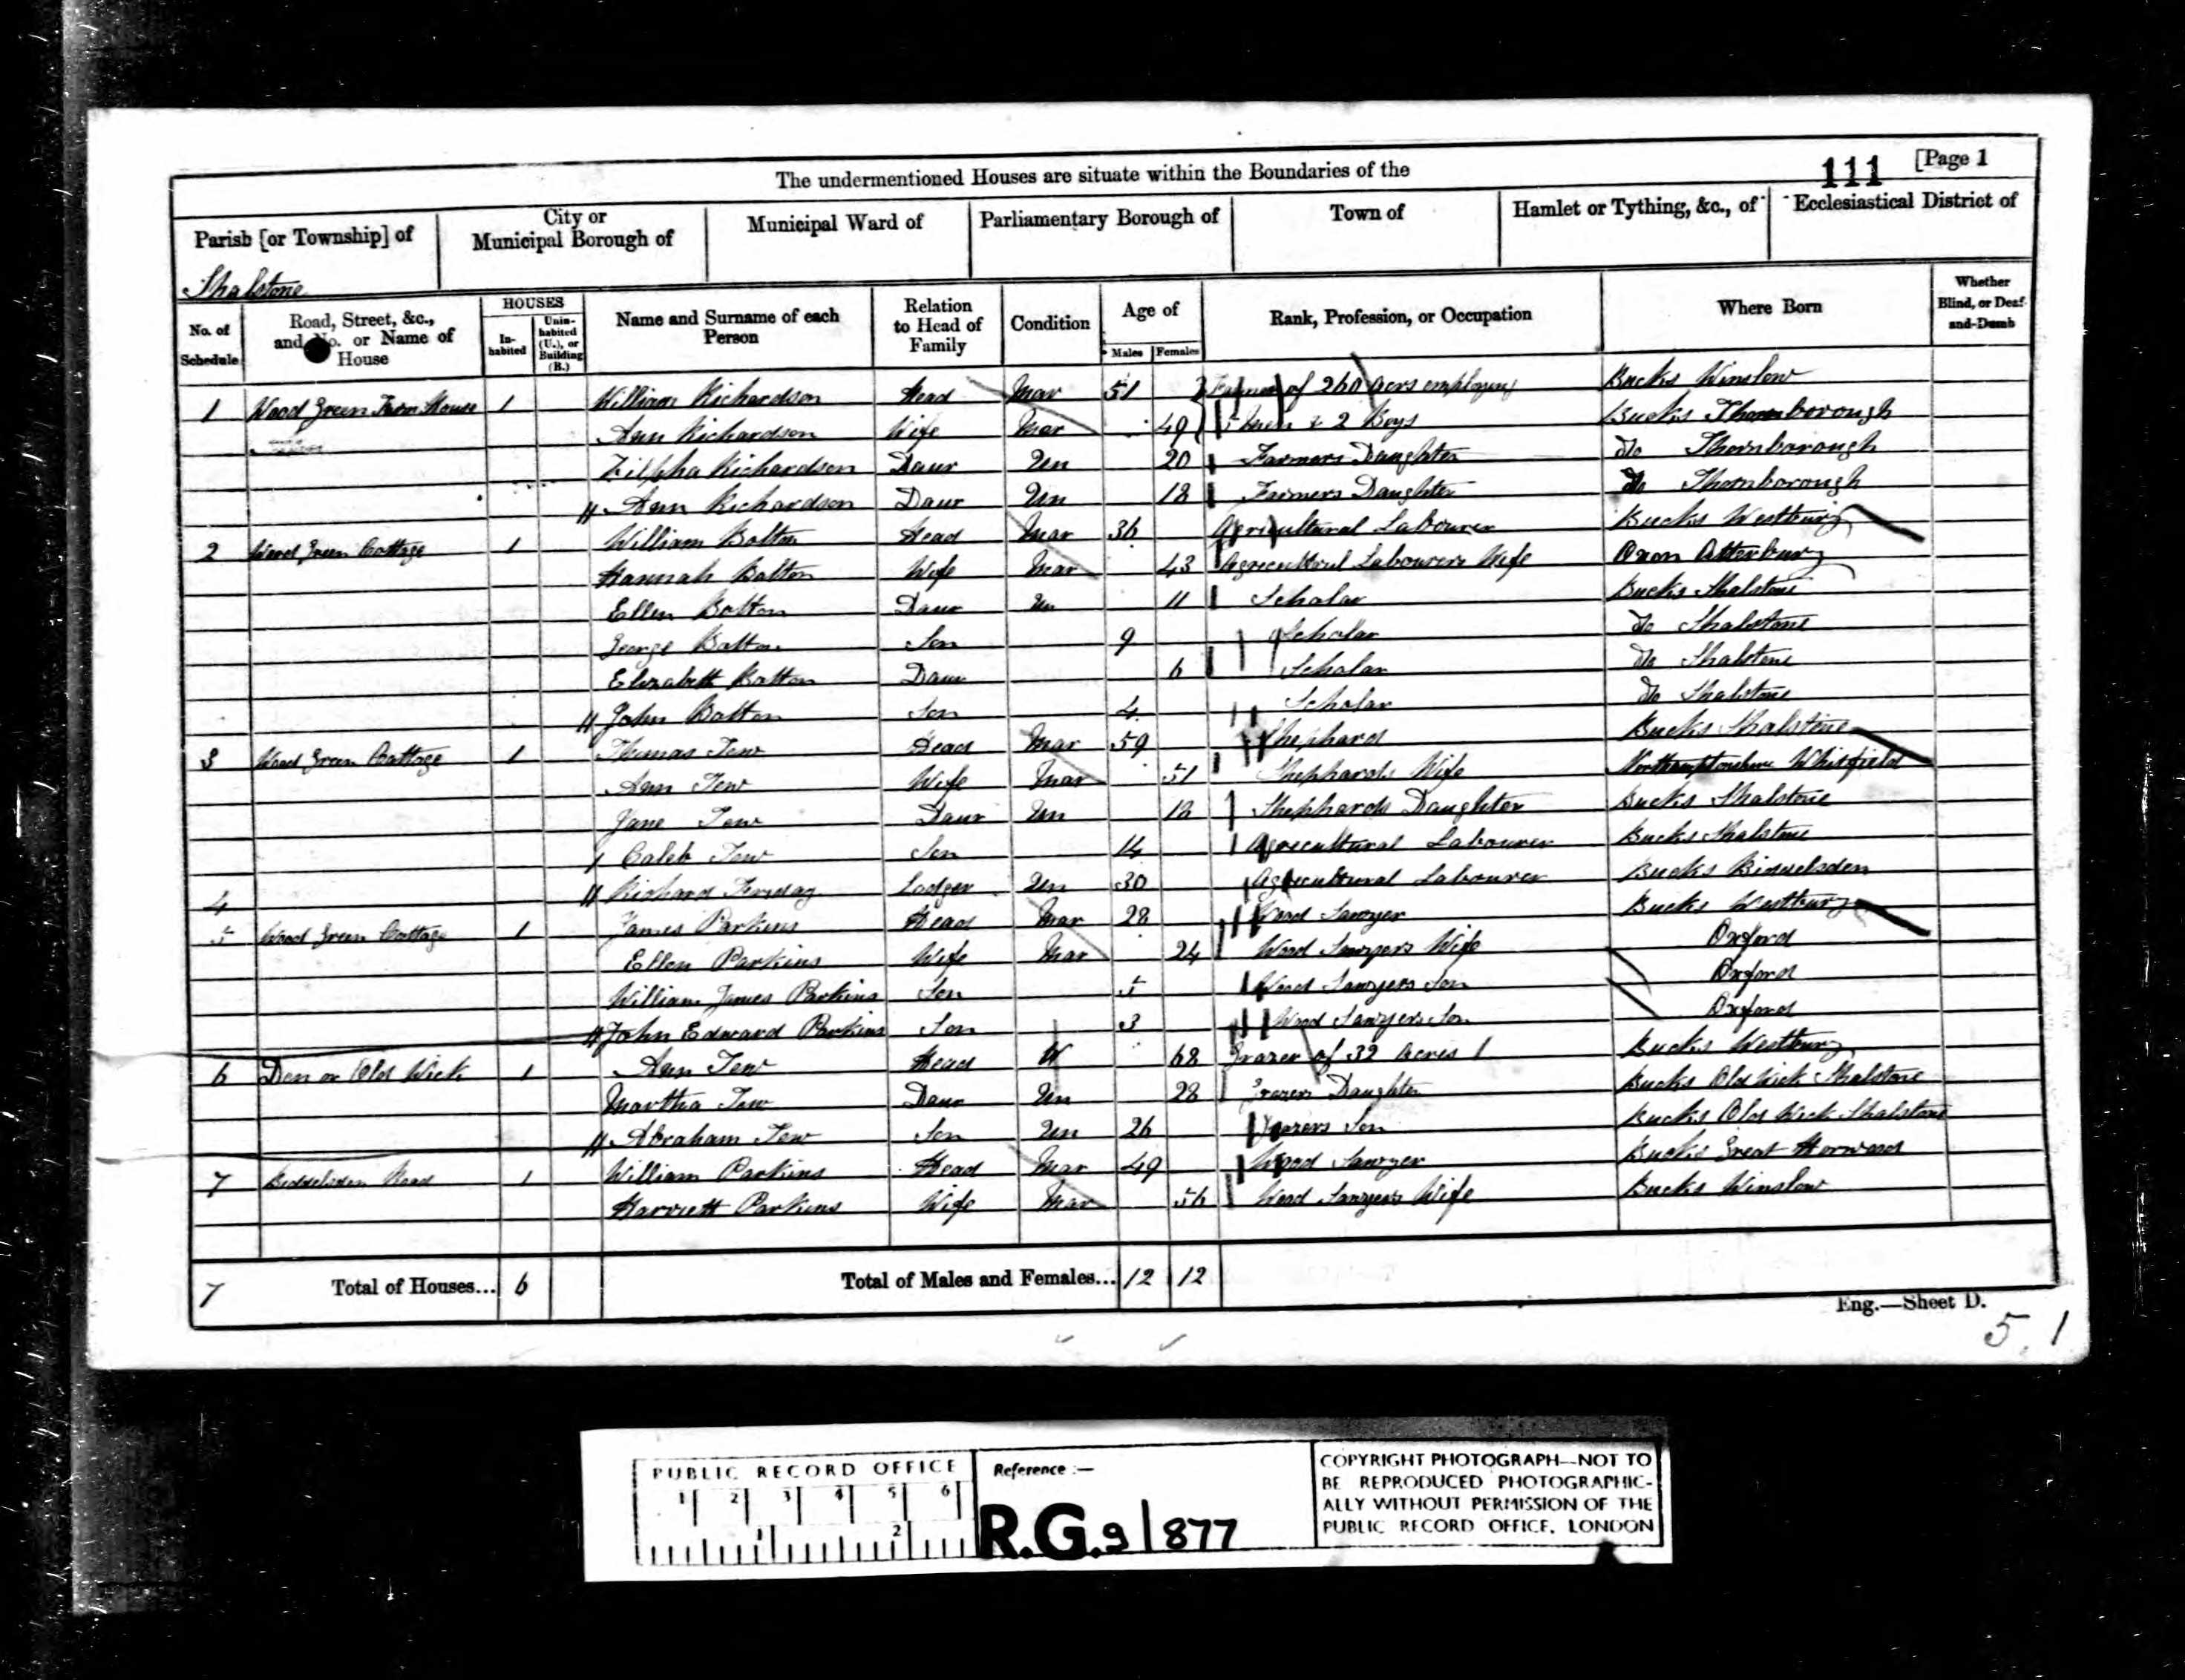 The undermentioned Houses are situate within the Boundaries of the
111 [Page 1
Parish [or Township] of City or Municipal Borough of Municipal Ward of Parliamentary Borough of Town of Hamlet or Tything, &c., of Ecclesiastical District of
Shalstone
No. of Schedule Road, Street, &c., and No. or Name of House HOUSES In-habited Unin-habited (U.), or Building (B.) Name and Surname of each Person Relation to Head of Family Condition Age of Males Females Rank, Profession, or Occupation Where Born Whether Blind, or Deaf-and-Dumb
1 Wood Green Farm House 1 William Richardson Head Mar 51 Farmer of 260 Acrs employing Bucks Winslow
Ann Richardson Wife Mar 49 5 Men & 2 Boys Bucks Thornborough
Zilpha Richardson Daur Un 20 Farmers Daughter Do Thornborough
Ann Richardson Daur Un 18 Farmers Daughter Do Thornborough
2 Wood Green Cottage 1 William Bolton Head Mar 36 Agricultural Labourer Bucks Westbury
Hannah Bolton Wife Mar 43 Agricultrul Labourers Wife Oxon Atterbury
Ellen Bolton Daur Un 11 Scholar Bucks Shalstone
George Bolton Son 9 Scholar Do Shalstone
Elizabeth Bolton Daur 6 Scholar Do Shalstone
John Bolton Son 4 Scholar Do Shalstone
3 Wood Green Cottage 1 Thomas Tew Head Mar 59 Shephard Bucks Shalstone
Ann Tew Wife Mar 51 Shephards Wife Northamptonshire Whitfield
Jane Tew Daur Un 18 Shephards Daughter Bucks Shalstone
Caleb Tew Son 14 Agricultural Labourer Bucks Shalstone
4 Richard Lodger Un 30 Agricultural Labourer Bucks
5 Wood Green Cottage 1 James Parkins Head Mar 28 Wood Sawyer Bucks Westbury
Ellen Parkins Wife Mar 24 Wood Sawyers Wife Oxford
William James Parkins Son 5 Wood Sawyers Son Oxford
John Edward Parkins Son 3 Wood Sawyers Son Oxford
6 Den or Old Wick 1 Ann Tew Head W 68 Grazer of 32 Acres Bucks Westbury
Martha Tew Daur Un 28 Grazers Daughter Bucks Old Wick Shalstone
Abraham Tew Son Un 26 Grazers Son Bucks Old Wick Shalstone
7 Biddlesden Road 1 William Parkins Head Mar 49 Wood Sawyer Bucks Great Horwood
Harriett Parkins Wife Mar 56 Wood Sawyers Wife Bucks Winslow
7 Total of Houses... 6 Total of Males and Females... 12 12
Eng.—Sheet D.
5.1
PUBLIC RECORD OFFICE
1 2 3 4 5 6
1 2
Reference :—
R.G.9/877
COPYRIGHT PHOTOGRAPH—NOT TO
BE REPRODUCED PHOTOGRAPHIC-
ALLY WITHOUT PERMISSION OF THE
PUBLIC RECORD OFFICE, LONDON